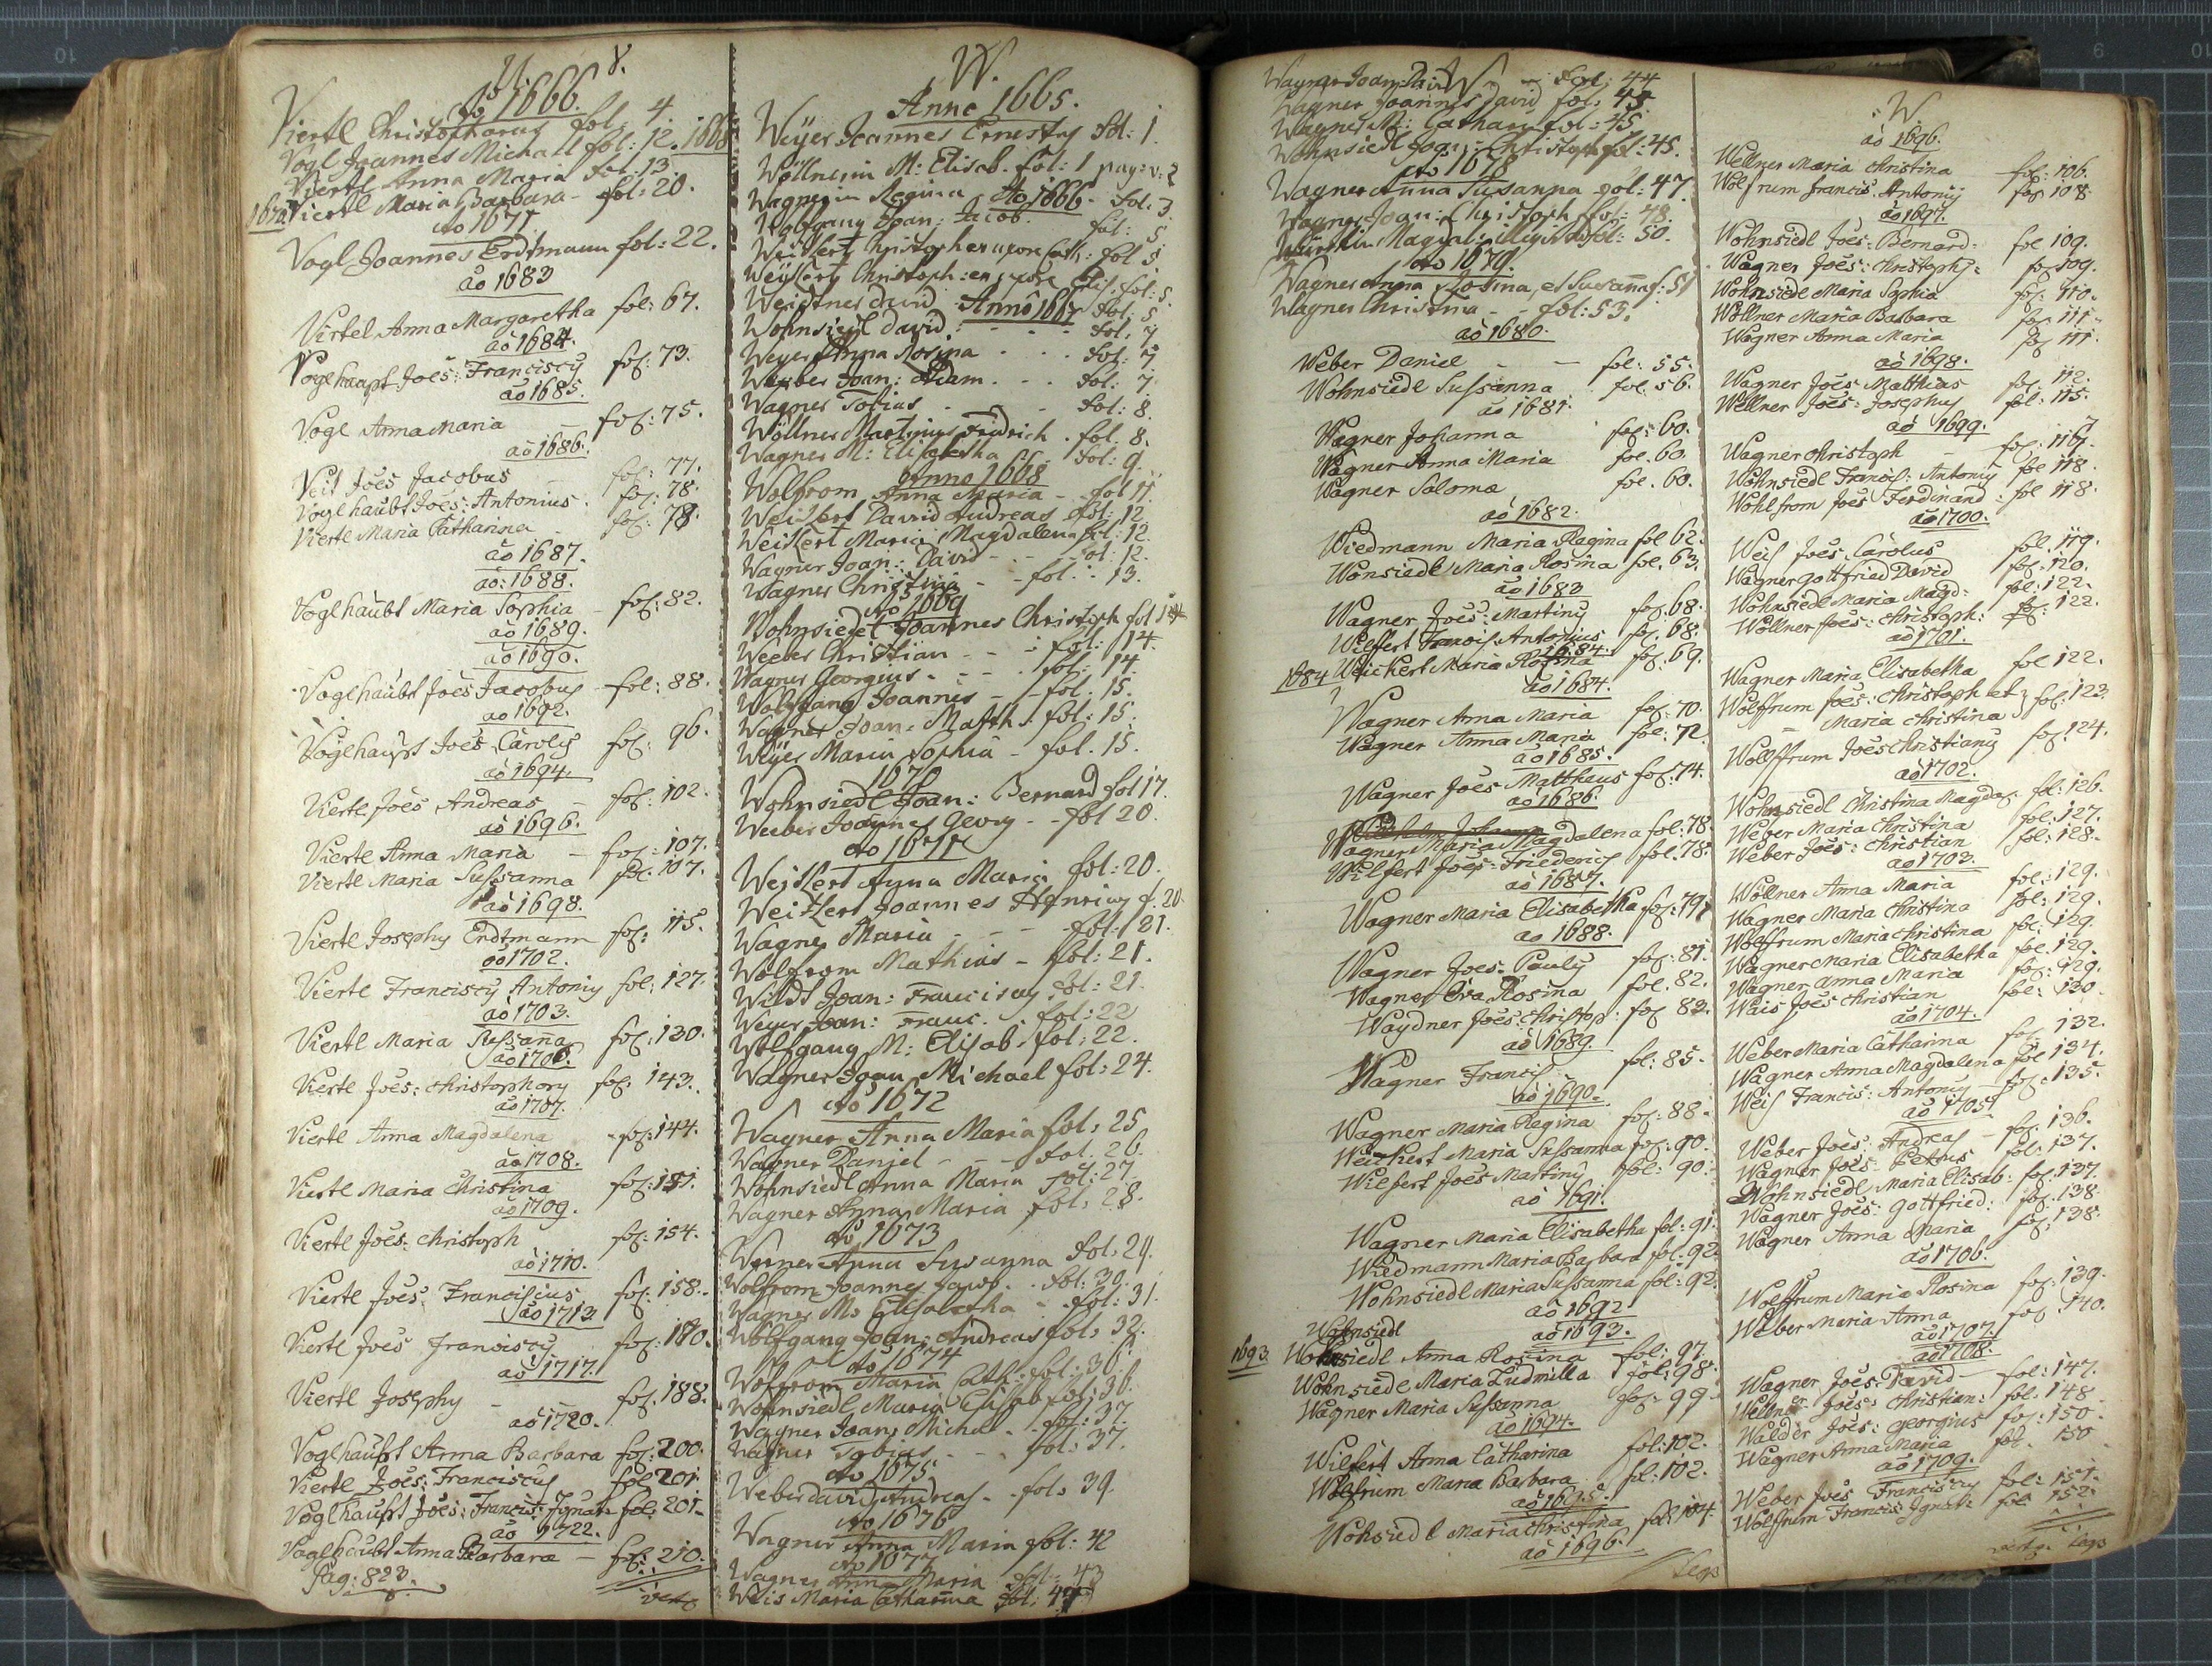 V.
Aō 1666.
Viertl Christophorus fol: 4.
Vogl Joannes Michall fol: 12. 1668
Viertl Anna Maria fol: 13.
1670 Viertl Maria Barbara - fol: 20.
Aō 1671
Vogl Joannes Erdtmann fol: 22.
aō 1683
Virtel Anna Margaretha fol: 67.
aō 1684.
Voglhaupt Joēs: Franciscy fol: 73.
aō 1685.
Vogl Anna Maria - fol: 75.
aō 1686.
Veit Joēs Jacobus - fol: 77.
Voglhaubt Joēs: Antonius. fol: 78.
Viertl Maria Catharina fol: 78.
aō 1687.
aō: 1688.
Voglhaubt Maria Sophia - fol: 82.
aō 1689.
aō 1690.
Voglhaubt Joēs Jacobus - fol: 88.
aō 1692.
Voglhaupt Joēs Caroly fol: 96.
aō 1694.
Viertl Joēs Andreas - fol: 102.
aō 1696.
Viertl Anna Maria - fol: 107.
Viertl Maria Sussanna fol: 107.
aō 1698.
Viertl Josephy Erdtmann fol: 115.
aō 1702.
Viertl Franciscy Antoniy fol: 127.
aō 1703.
Viertl Maria Sussaña fol: 130.
aō 1706.
Viertl Joēs: Christophory fol: 143.
aō 1707.
Viertl Anna Magdalena - fol: 144.
aō 1708.
Viertl Maria Christina fol: 151.
aō 1709.
Viertl Joēs: Christoph fol: 154.
aō 1710.
Viertl Joēs: Franciscus fol: 158.
aō 1713
Viertl Joēs Franciscy fol: 170.
aō 1717.
Viertl Josephy - fol. 188.
aō 1720.
Voglhaubt Anna Barbara fol: 200.
Viertl Joēs: Franciscus fol 201.
Voglhaubt Joēs: Francis: Ignati fol: 201.
aō 1722.
Voglhaubt Anna Barbara - fol: 210.
Pag: 823.
W.
Anno 1665.
Weÿer Joannes Ernestus fol: 1.
Wöllnerin M: Elisab. fol: 1 pag: v. 2
Wagnerin Regina Aō 1666 - fol: 3
Wolfgang Joan: Jacob. fol: 5
Weikert Christoph ex uxore Cath: fol 5
Weÿkert Christoph: ex uxore Elis. fol: 5.
Weidtner David Anno 1667 fol: 5
Wohnsiedl David: - - fol: 7
Weyer Anna Rosina . . . fol: 7
Weeber Joan: Adam. . . fol: 7
Wagner Tobias - - fol: 8.
Wöllner Martinus Fridrich . fol. 8.
Wagner M: Elisabetha fol: 9.
Anno 1668
Wolfrom Anna Maria - - fol 11.
Weikert David Andreas fol: 12.
Weikert Maria Magdalena fol: 12.
Wagner Joan: David - fol: 12.
Wagner Christina - - fol: 13.
Aō 1669
Wohnsiedl Joannes Christoph fol 14
Weeber Christian - - fol: 14.
Wagner Georgius - - - fol: 14.
Wolfgang Joannes - - fol: 15.
Wagner Joan: Math: fol: 15.
Weÿer Maria Sophia - fol. 15.
1670
Wohnsiedl Joan: Bernard fol 17.
Weeber Joannes Georg - - fol 20.
Aō 1671
Weikert Anna Maria fol: 20.
Weikert Joannes Henricus f. 20.
Wagner Maria - - - fol: 21.
Wolfrom Mathias - fol: 21.
Wildt Joan: Franciscus fol: 21.
Weyer Joan: Franc. . fol: 22
Wolfgang M: Elisab: fol: 22.
Wagner Joan Michael fol: 24.
Aō 1672
Wagner Anna Maria fol: 25
Wagner Daniel - - - fol. 26.
Wohnsiedl Anna Maria fol: 27.
Wagner Anna Maria fol: 28.
Aō 1673
Werner Anna Susanna fol: 29.
Wolfrom Joannes Jacob. . fol: 30.
Wagner M: Elisabetha - fol: 31.
Wolfgang Joan: Andreas fol: 32.
Aō 1674
Wolfrom Maria Cath: fol: 36.
Wohnsiedl Maria Elisab fol: 36.
Wagner Joan: Michel . fol: 37.
Wagner Tobias - - - fol: 37.
Aō 1675
Weber David Andreas - - fol: 39.
Aō 1676
Wagner Anna Maria fol: 42
Aō 1677
Wagner Anna Maria fol: 43
Weis Maria Catharina fol: 44
W
Wagner Joan: David - fol: 44
Wagner Joannes David fol: 45.
Wagner M: Cathar: fol: 45
Wohnsiedl Joan: Christoph fol: 45.
Aō 1678
Wagner Anna Susanna fol: 47.
Wagner Joan: Christoph fol: 48.
Magdal: fol: 50.
Aō 1679.
Wagner Anna Rosina, et Susanna f: 51
Wagner Christina - - fol: 53.
aō 1680.
Weber Daniel - - fol: 55.
Wohnsiedl Sussanna fol. 56.
aō 1681.
Wagner Johanna fol: 60.
Wagner Anna Maria fol. 60.
Wagner Salome fol. 60.
aō 1682.
Wiedmann Maria Regina fol 62.
Wonsiedl Maria Rosina fol. 63.
aō 1683
Wagner Joēs: Martiny fol: 68.
Wilfert Francis. Antonius fol. 68.
1684.
1684 Weickert Maria Rosina fol. 69.
aō 1684.
Wagner Anna Maria fol: 70.
Wagner Anna Maria fol: 72.
aō 1685.
Wagner Joēs Matthaus fol: 74.
aō 1686.
Wagner Maria Magdalena fol: 78.
Wilfert Joēs: Friedericy fol. 78.
aō 1687.
Wagner Maria Elisabetha fol: 79.
aō 1688.
Wagner Joēs: Pauly fol: 81.
Wagner Eva Rosina fol. 82.
Waydner Joēs: Christop: fol 83.
aō 1689.
Wagner Francis. fol: 85.
aō 1690.
Wagner Maria Regina fol: 88.
Weickert Maria Sussanna fol: 90.
Wilfert Joēs Martiny fol: 90.
aō 1691.
Wagner Maria Elisabetha fol: 91.
Wiedmann Maria Barbara fol. 92
Wohnsiedl Maria Sussanna fol: 92.
aō 1692
Wohnsiedl aō 1693.
1693 Wohnsiedl Anna Rosina fol: 97.
Wohnsiedl Maria Ludmilla fol: 98.
Wagner Maria Sussanna fol. 99.
aō 1694.
Wilfert Anna Catharina fol: 102.
Wolfrum Maria Barbara fol: 102.
aō 1695.
Wohsiedl Maria Christina fol: 104.
aō 1696.
W
aō 1696.
Wellner Maria Christina fol: 106.
Wolfrum Francis. Antoniy fol 108
aō 1697.
Wohnsiedl Joēs: Bernard: fol 109.
Wagner Joēs: Christophy: fol 109.
Wohnsiedl Maria Sophia fol: 110.
Wöllner Maria Barbara fol 111.
Wagner Anna Maria fol 111.
aō 1698.
Wagner Joēs Matthias fol: 112.
Wellner Joēs: Josephus fol: 115.
aō 1699.
Wagner Christoph - fol: 117.
Wohnsiedl Francis: Antoniy fol 118.
Wohlfrom Joēs Ferdinand: fol 118.
aō 1700.
Weis Joēs Carolus fol. 119.
Wagner Gottfried David fol: 120.
Wohnsiedl Maria Magd: fol: 122.
Wöllner Joēs: Christoph: fol: 122.
aō 1701.
Wagner Maria Elisabetha fol 122.
Wolffrum Joēs: Christoph et } fol: 123.
- Maria Christina
Wolffrum Joēs Christiany fol. 124.
aō 1702.
Wohnsiedl Christina Magda. fol: 126.
Weber Maria Christina fol: 127.
Weber Joēs: Christian fol: 128.
aō 1703.
Wöllner Anna Maria fol: 129.
Wagner Maria Christina fol: 129.
Wolffrum Maria Christina fol: 129.
Wagner Maria Elisabetha fol. 129.
Wagner Anna Maria fol: 129.
Wais Joēs Christian fol: 130.
aō 1704.
Weber Maria Catharina fol. 132.
Wagner Anna Magdalena fol 134.
Weis Francis: Antoniy - fol: 135.
aō 1705
Weber Joēs: Andreas - fol. 136.
Wagner Joēs: Petrus fol: 137.
Wohnsiedl Maria Elisab: fol: 137.
Wagner Joēs: Gottfried: fol: 138.
Wagner Anna Maria fol: 138.
aō 1706.
Wolffrum Maria Rosina fol: 139.
Weber Maria Anna fol 140.
aō 1707.
aō 1708.
Wagner Joēs: David - fol: 147.
Wellner Joēs: Christian: fol. 148
Walder Joēs: Georgius fol: 150.
Wagner Anna Maria fol. 150
aō 1709.
Weber Joēs Franciscy fol: 151.
Wolffrum Francis: Ignat: fol 152.